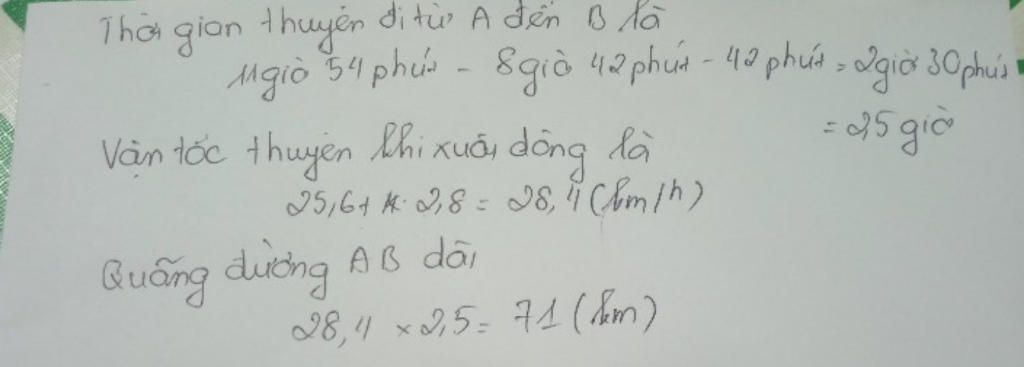 Thời gian thuyền đi từ A đến B là
11giờ 54phút - 8giờ 42phút - 42phút = 2giờ 30phút
= 2,5 giờ
Vận tốc thuyền khi xuôi dòng là
25,6 + 2,8 = 28,4 (km/h)
Quãng đường AB dài
28,4 × 2,5 = 71 (km)